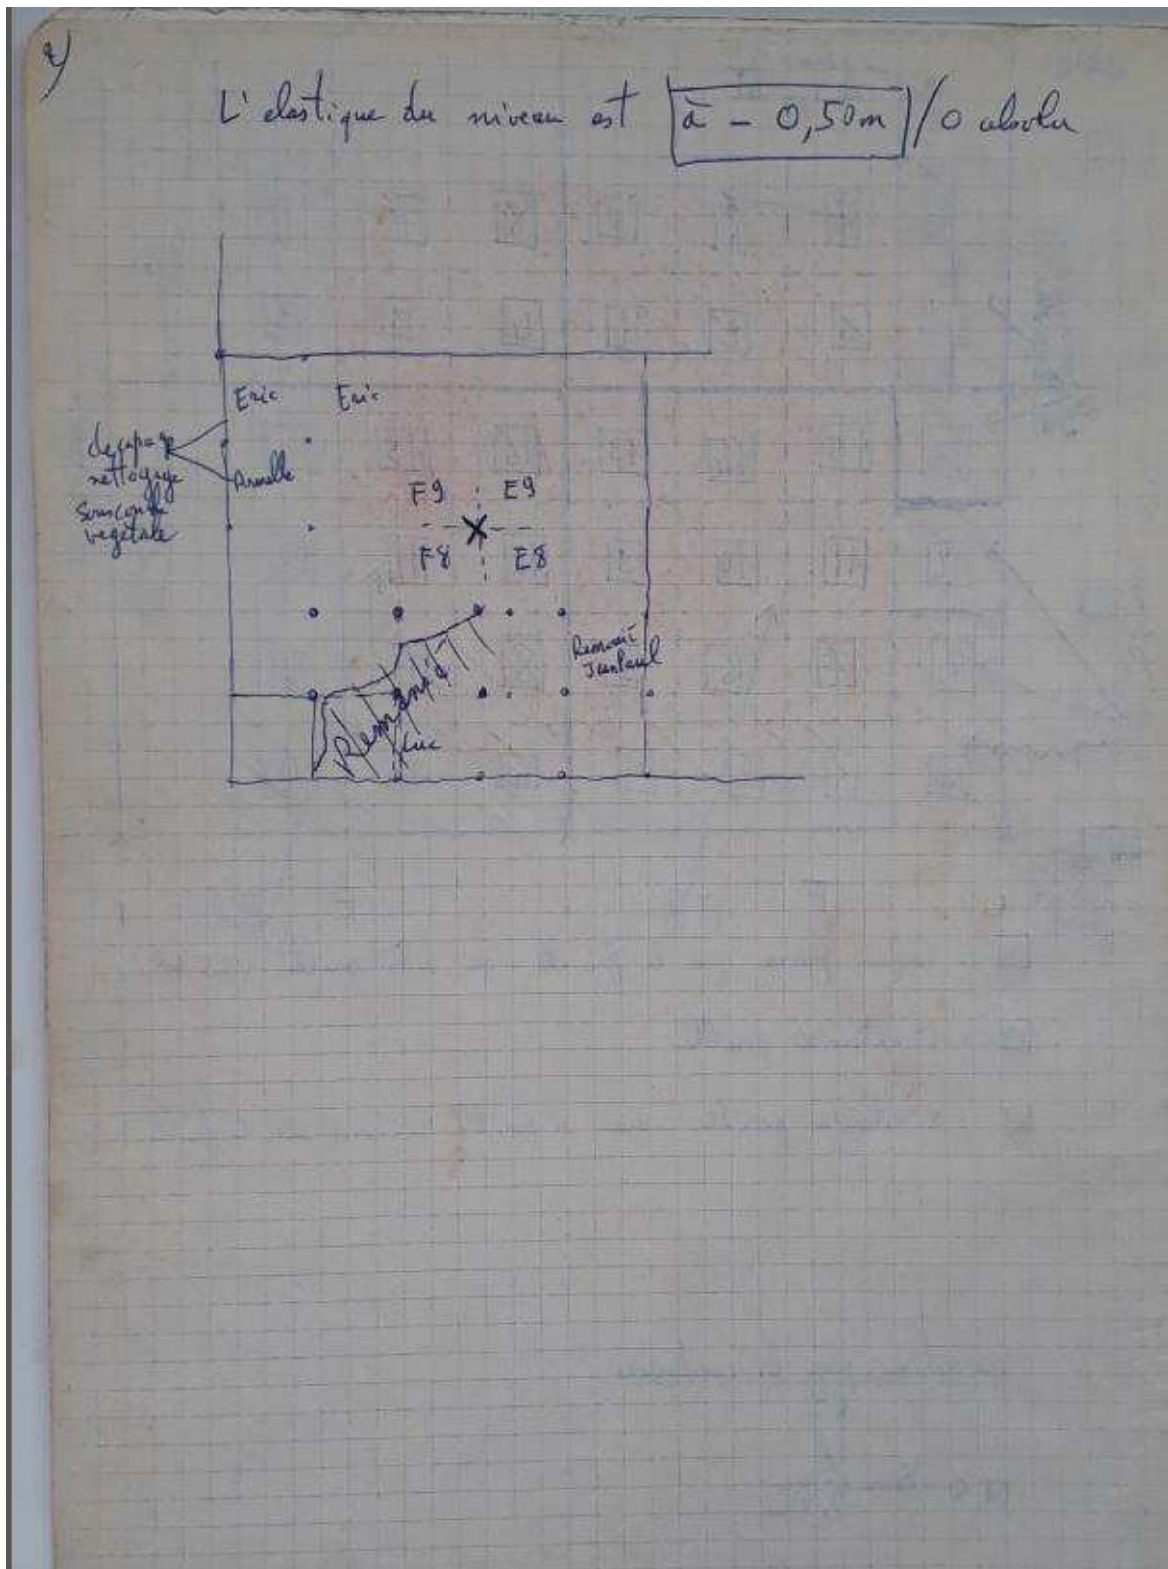 2)
L'elastique du niveau est à - 0,50m / 0 absolu
Eric Eric
decapage
nettoyage
vegetale
Armelle
F9 E9
F8 E8
Jean Paul
Remanié
Luc